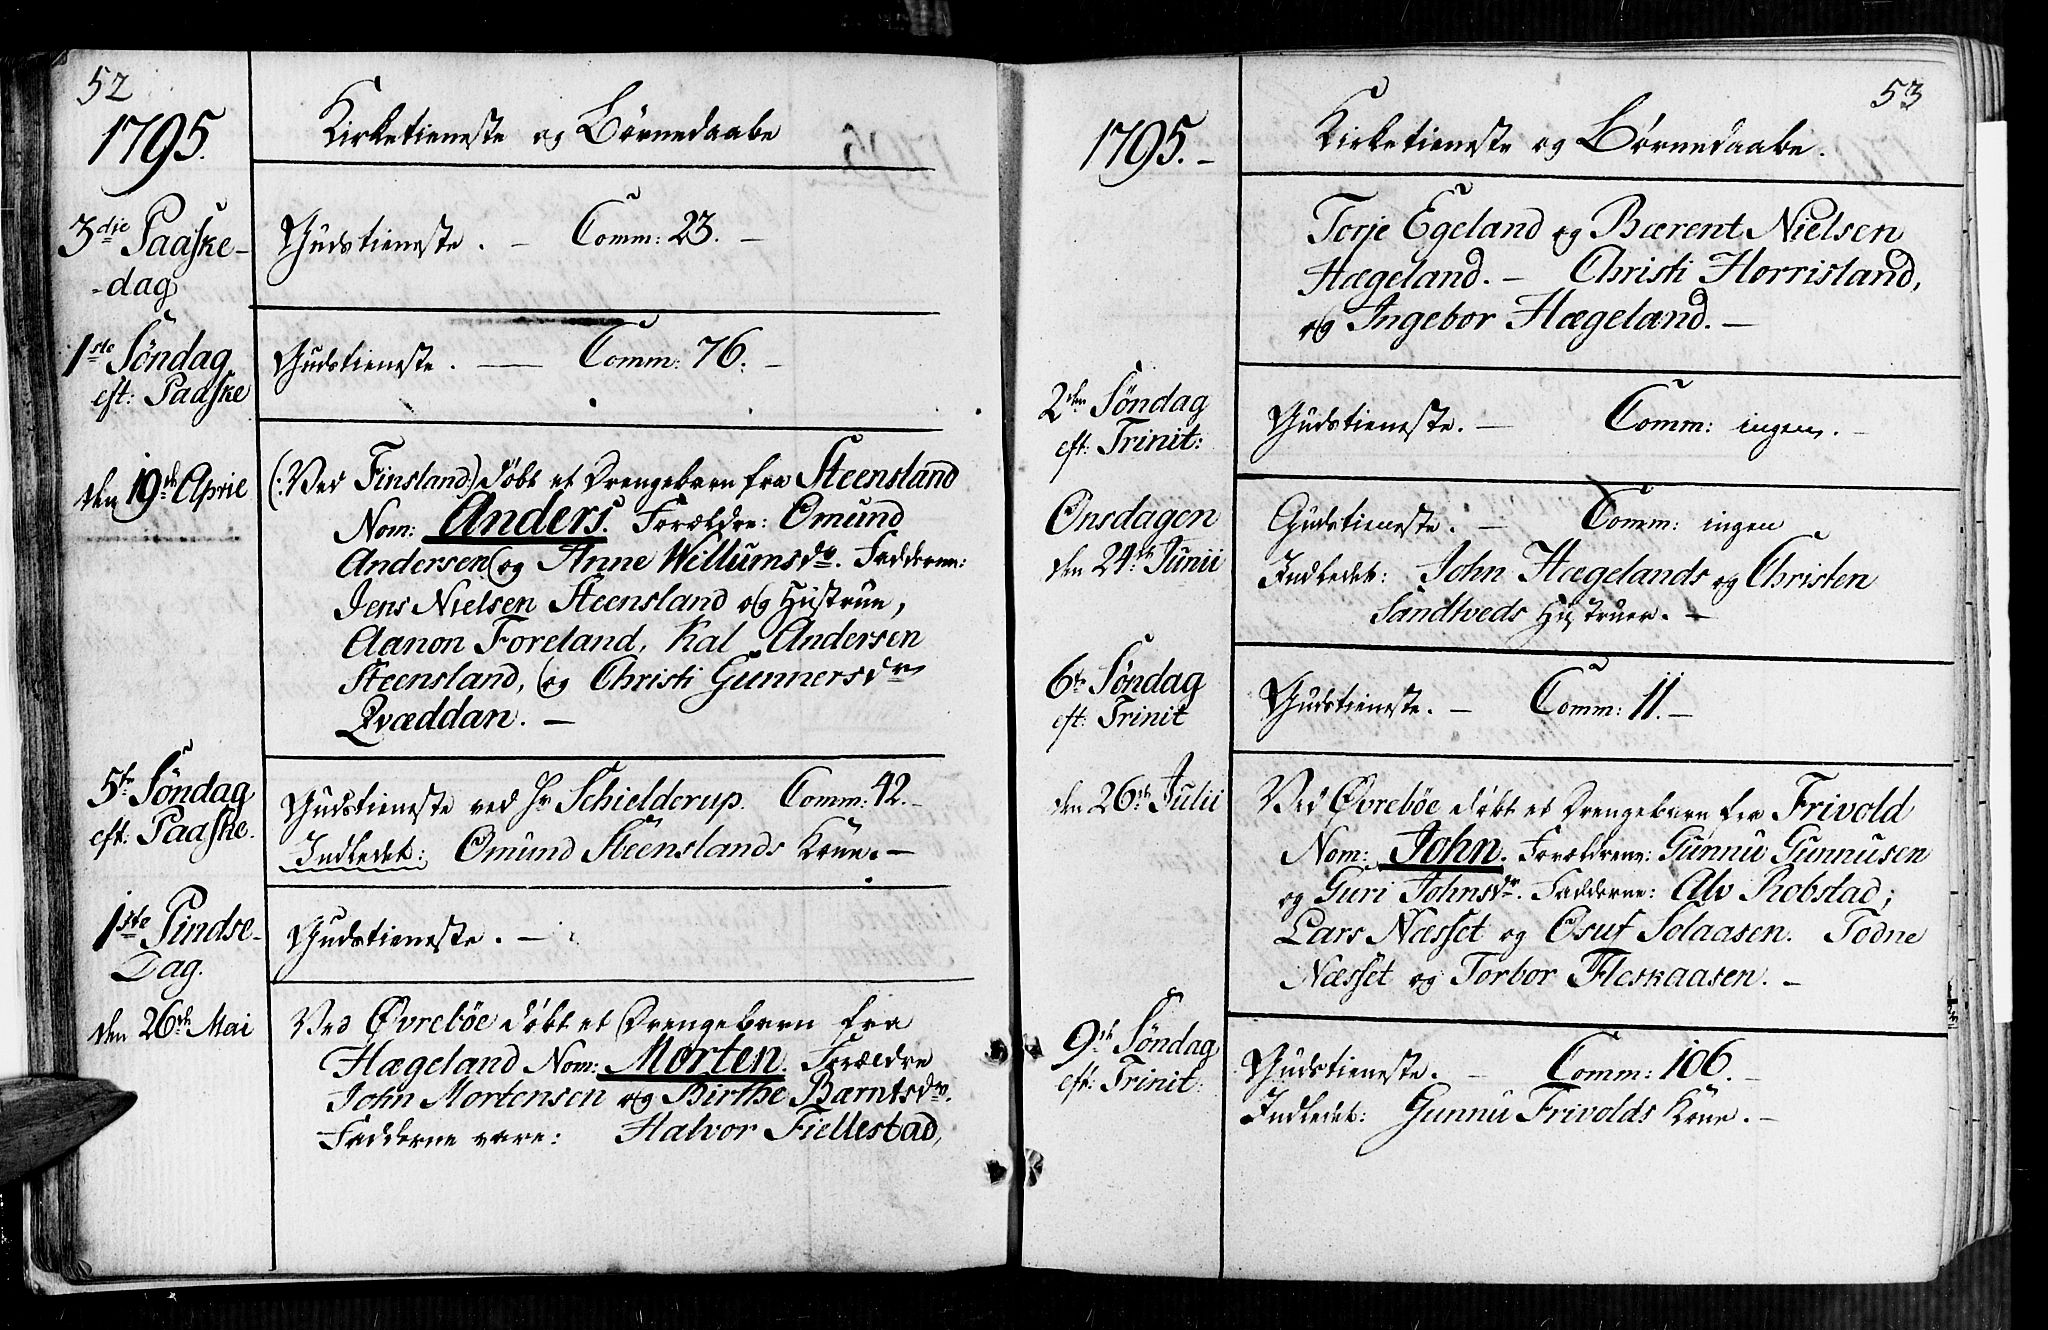 52
1795.
Kirketieneste og Børnedaabe
3die Paaske-
-dag
Gudstieneste. — Comm: 23. —
1ste Søndag
eft: Paaske
Gudstieneste. — Comm: 76. —
den 19de April
(: Ved Finsland) døbt et Drengebarn fra Steensland
Nom: Anders. Forældre: Omund
Andersen og Anne Willumsdr. Fadderne:
Jens Nielsen Steensland og Hustrue,
Aanon Foreland, Kal Andersen
Steensland, og Christi Gunnersdr
Qvæddan. —
5te Søndag
eft: Paaske.
Gudstieneste ved Hr Schielderup. Comm: 42. —
Indledet: Omund Steenslands Kone. —
1ste Pindse-
Dag.
Gudstieneste. —
den 26de Mai
Ved Øvrebøe døbt et Drengebarn fra
Hægeland Nom: Morten. Forældre
John Mortensen og Birthe Bærntsdr.
Fadderne vare: Halvor Fiellestad,
53
1795. —
Kirketieneste og Børnedaabe.
Torje Egeland og Bærent Nielsen
Hægeland. — Christi Horrisland,
og Ingebor Hægeland. —
2den Søndag
eft: Trinit:
Gudstieneste. — Comm: ingen. —
Onsdagen
den 24de Junii
Gudstieneste. — Comm: ingen
Indledet: John Hægelands og Christen
Sandtveds Hustruer. —
6te Søndag
eft: Trinit
Gudstieneste. — Comm: 11. —
den 26de Julii
Ved Øvrebøe døbt et Drengebarn fra Frivold
Nom: John. Forældrene: Gunnu Gunnusen
og Guri Johnsdr. Fadderne: Alv Robstad;
Lars Næsset og Osuf Solaasen. Todne
Næsset og Torbor Fleskaasen. —
9de Søndag
eft: Trinit:
Gudstieneste. — Comm: 106. —
Indledet: Gunnu Frivolds Kone. —